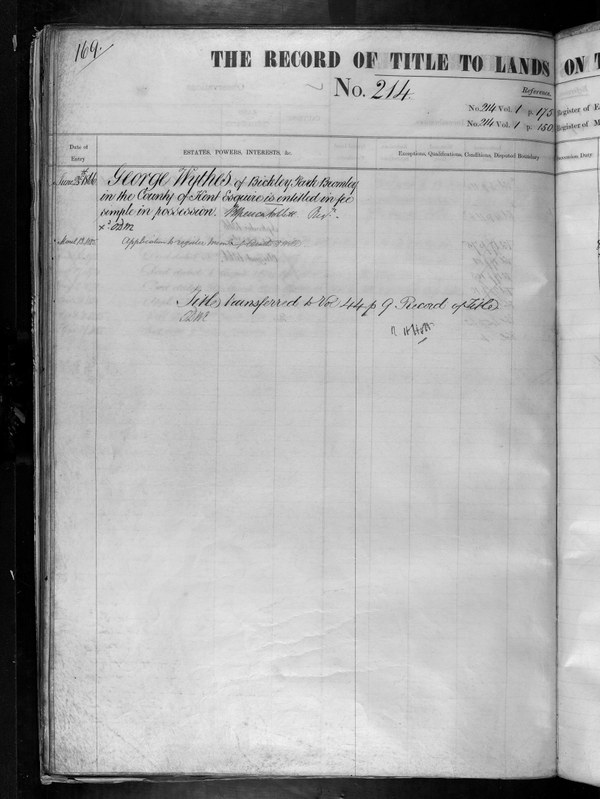 169.
THE RECORD OF TITLE TO LANDS ON T
No. 214
Reference.
No. 214 Vol. 1 p. 175 Register of E
No. 214 Vol. 1 p. 150 Register of M
Date of
Entry
ESTATES, POWERS, INTERESTS, &c.
Exceptions, Qualifications, Conditions, Disputed Boundary
George Wythes of Bickley Park Bromley
in the County of Kent Esquire is entitled in fee
simple in possession.
Application to register
Title transferred to Vol 44 p 9 Record of Title